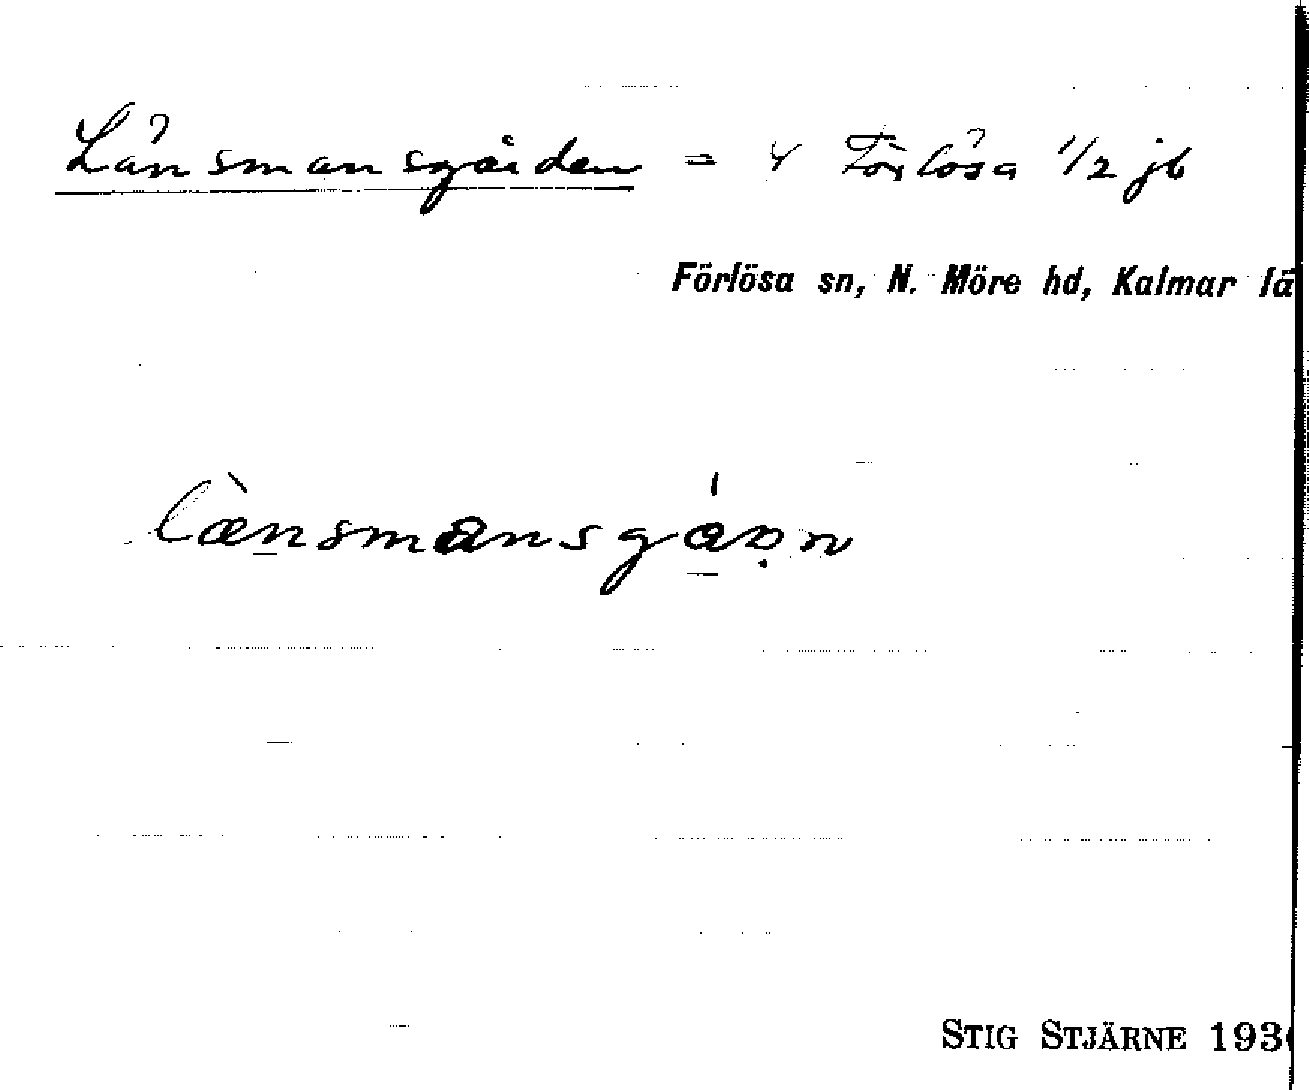 Länsmansgården = 4 Förlösa 1/2 jb
Förlösa sn, N. Möre hd, Kalmar lä
lænsmansgaɒn
STIG STJÄRNE 193